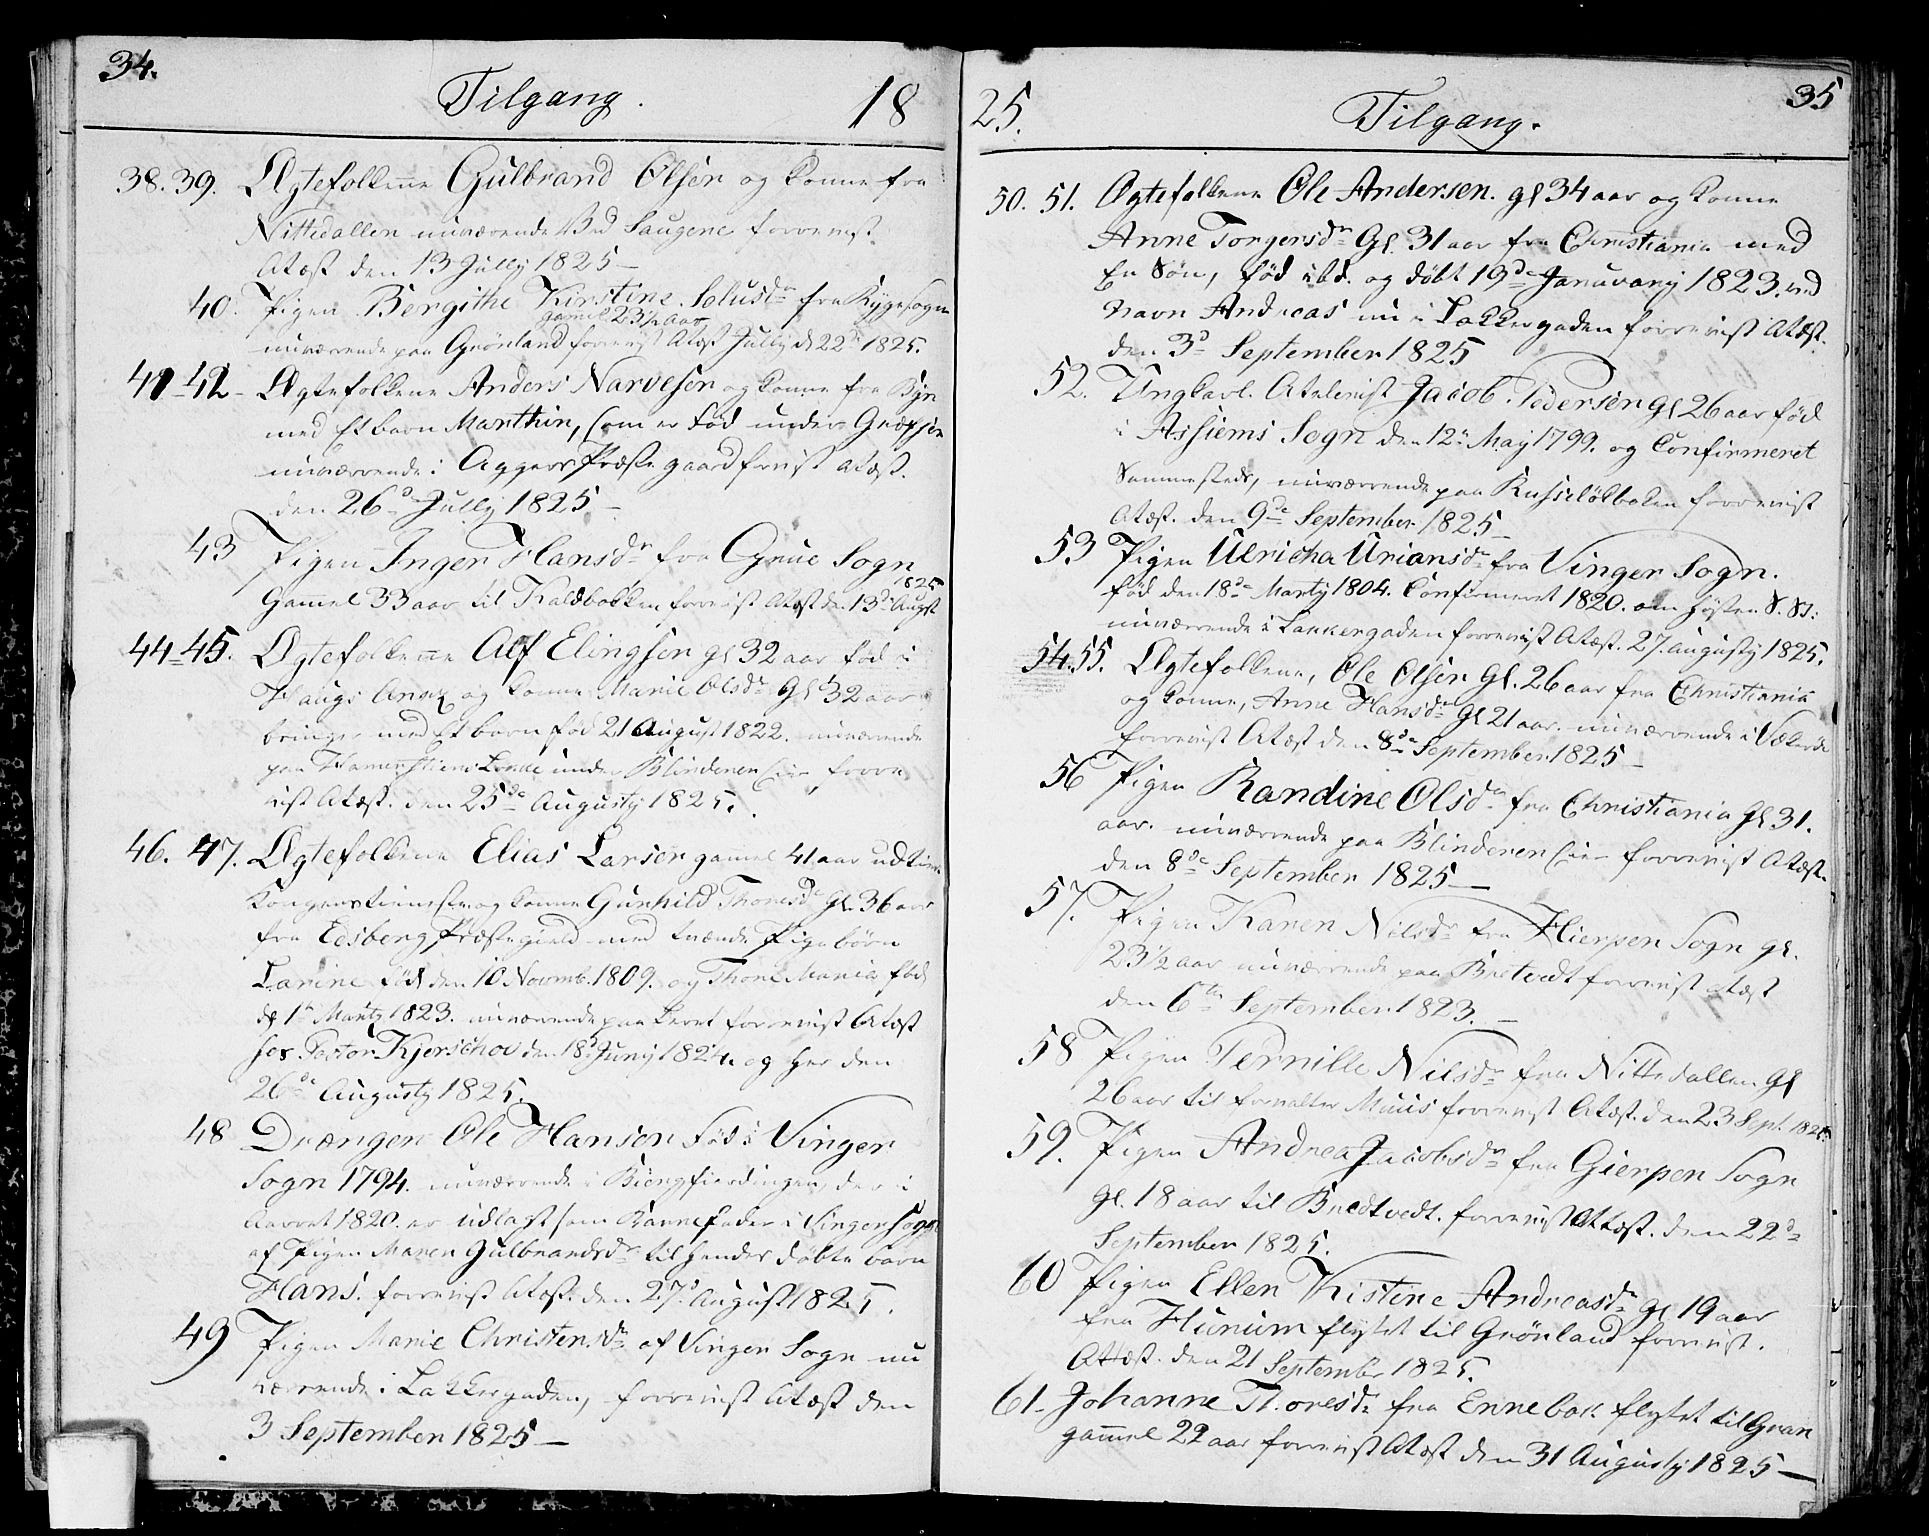 34.
Tilgang. 18
38. 39. Ægtefolkene Gulbrand Olsen og Konne fra
Nittedallen nuværende Ved Saugene forevist
Atæst den 13 Jully 1825 —
40. Pigen Bergithe Kirstine fra Rygesogn
gamel 23 1/2 aar
nuværende paa Grønland forevist Atæst Jully d 22 1825.
41-42- Ægtefolkene Anders Narvesen og Konne fra Byn
med Et barn Marthin, som er Fød under
nuværende i Aggers Præstegaard forevist atæst.
den 26d Jully 1825 —
43 Pigen Inger Hansdr fra Grue Sogn
Gamel 33 aar til Kaldbakken forevist Atæst den 13d Augst 1825
44-45. Ægtefolkene Alf Elingsen gl 32 aar fød i
Haugs Anex og Konne Marie Olsdr Gl 32 aar
bringer med Et barn fød 21 August 1822. nuværende
paa under Blinderen Eier forre
vist Atæst. den 25de Augusty 1825.
46. 47. Ægtefolkene Elias Larsen gamel 41 aar udtient
Kongens tieneste og Konne Gunhild Thoresdr Gl. 36 aar
fra Edsberg Præstegield med tvænde Pigebørn
Larine fød den 10 Novemb. 1809. og Thone Maria fød
d 1te Martz 1823. nuværende paa forevist Atæst
hos Pastor Kjerschov den 18 Juny 1824 og her den
26de Augusty 1825.
48 Drængen Ole Hansen Fød i Vinger
Sogn 1794. nuværende i Biergfierdingen, der i
Aaret 1820. er udlagt som Barnefader i Vinger Sogn
af Pigen Maren Gulbrandsdr til hendes døbte barn
Hans. forevist Atæst. den 27d August 1825.
49 Pigen Marie Christensdr af Vinger Sogn nu
værende i Lakkergaden, forevist Atæst den
3 September 1825 —
25. Tilgang. 35
50. 51. Ægtefolkene Ole Andersen. gl 34 aar og Konne
Anne Torgersdr Gl. 31 aar fra Christiania med
En Søn, fød ibd. og døbt 19de Januvary 1823. ved
Navn Andreas nu i Lakkergaden forevist Atæst.
den 3d September 1825
52. Ungkarl. Jacob Pedersen gl 26 aar fød
i Assiems Sogn den 12te May 1799. og Confirmeret
Sammesteds, nuværende paa Russeløkbaken forevist
Atæst. den 9de September 1825 —
53 Pigen Ulricha Uriansdr fra Vinger Sogn.
fød den 18de Marty 1804. Confirmeret 1820. om Høsten S. St:
nuværende i Lakkergaden forevist Atæst. 27. augusty 1825.
54. 55. Ægtefolkene, Ole Olsen Gl. 26 aar fra Christiania
og Konne, Anne Hansdr Gl 21 aar. nuværende i Vækerøe
forevist Atæst den 8de September 1825 —
56 Pigen Randine Olsdr fra Christiania gl 31.
aar. nuværende paa Blinderen Eier forevist Atæst.
den 8de September 1825 —
57. Pigen Karen Nilsdr fra Hierpen Sogn gl.
23 1/2 aar nuværende paa Bretvedt forevist atæst
den 6te September 1823. —
58 Pigen Pernille Nilsdr fra Nittedallen gl
26 aar til forvalter Muus forevist Atæst. den 23 Sept. 1825
59. Pigen Andrea Jacobsdr fra Gierpen Sogn
gl. 18 aar til Bredtvedt. forevist Attæst. den 22d
September 1825.
60 Pigen Ellen Kistine Andreasdr gl 19 aar
fra Hurum flytet til Grønland forevist.
Attæst. den 21 September 1825.
61- Johanne Thoresdr fra Ennebak flytet til Gran
gammel 22 aar forevist Atæst den 31 Augusty 1825 —